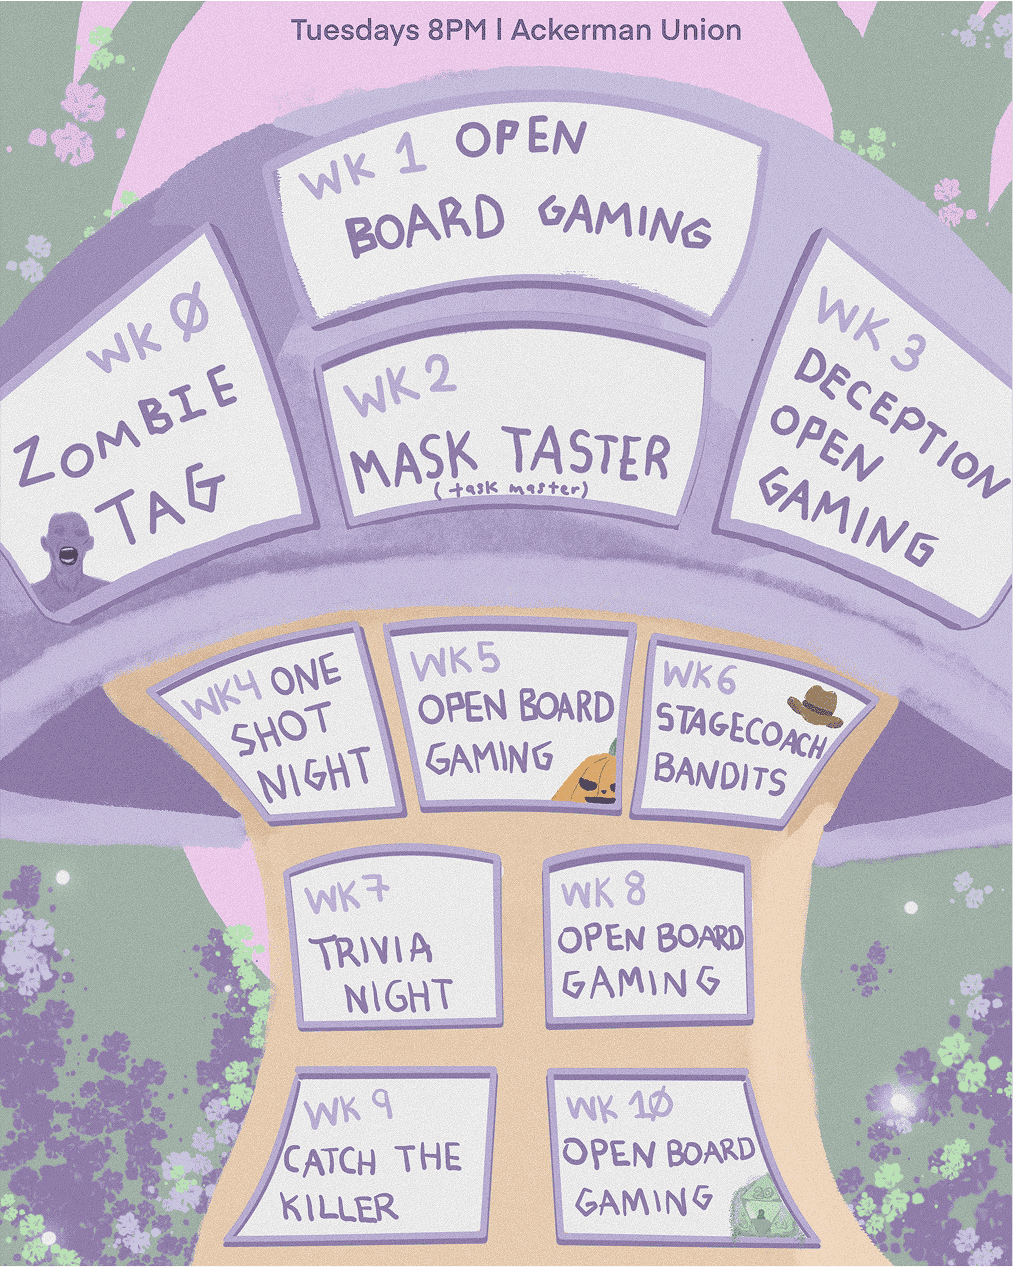 Tuesdays 8PM | Ackerman Union
WK 1 OPEN
BOARD GAMING
WK 0
ZOMBIE
TAG
WK 2
MASK TASTER
(task master)
WK 3
DECEPTION
OPEN
GAMING
WK4 ONE
SHOT
NIGHT
WK5
OPEN BOARD
GAMING
WK6
STAGECOACH
BANDITS
WK 7
TRIVIA
NIGHT
WK 8
OPEN BOARD
GAMING
WK 9
CATCH THE
KILLER
WK 10
OPEN BOARD
GAMING
20